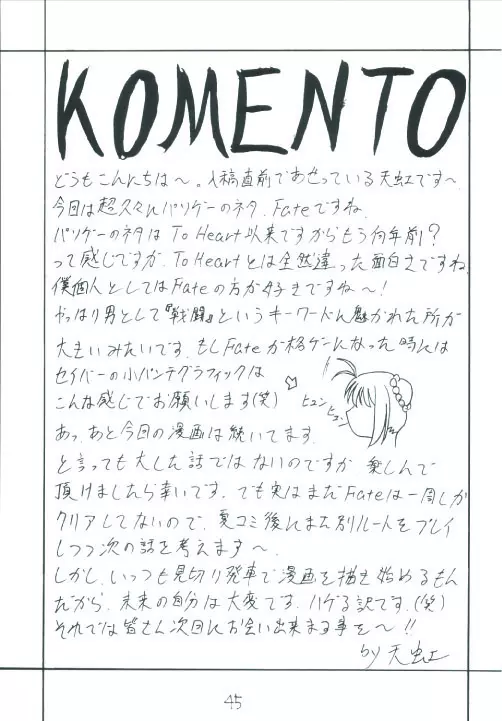 KOMENTO
どうもこんにちは～。入稿直前であせっている天虹です～。
今回は超久々にパソゲーのネタ、Fateですね。
パソゲーのネタはTo Heart以来ですからもう何年前?
って感じですが、To Heartとは全然違った面白さですね。
僕個人としてはFateの方が好きですね～!
やっぱり男として『戦闘』というキーワードに魅かれた所が
大きいみたいです。もしFateが格ゲーになった時には
セイバーの小パンチグラフィックは
こんな感じでお願いします(笑)
ヒュン
ヒュン
あっ、あと今回の漫画は続いてます。
と言っても大した話ではないのですが 楽しんで
頂けましたら幸いです。でも実はまだFateは一周しか
クリアしてないので、夏コミ後にまた別ルートをプレイ
しつつ次の話を考えます～。
しかし、いっつも見切り発車で漫画を描き始めるもん
だから、未来の自分は大変です。ハゲる訳です。(笑)
それでは皆さん次回にお会い出来ます事を～!!
by 天虹
45